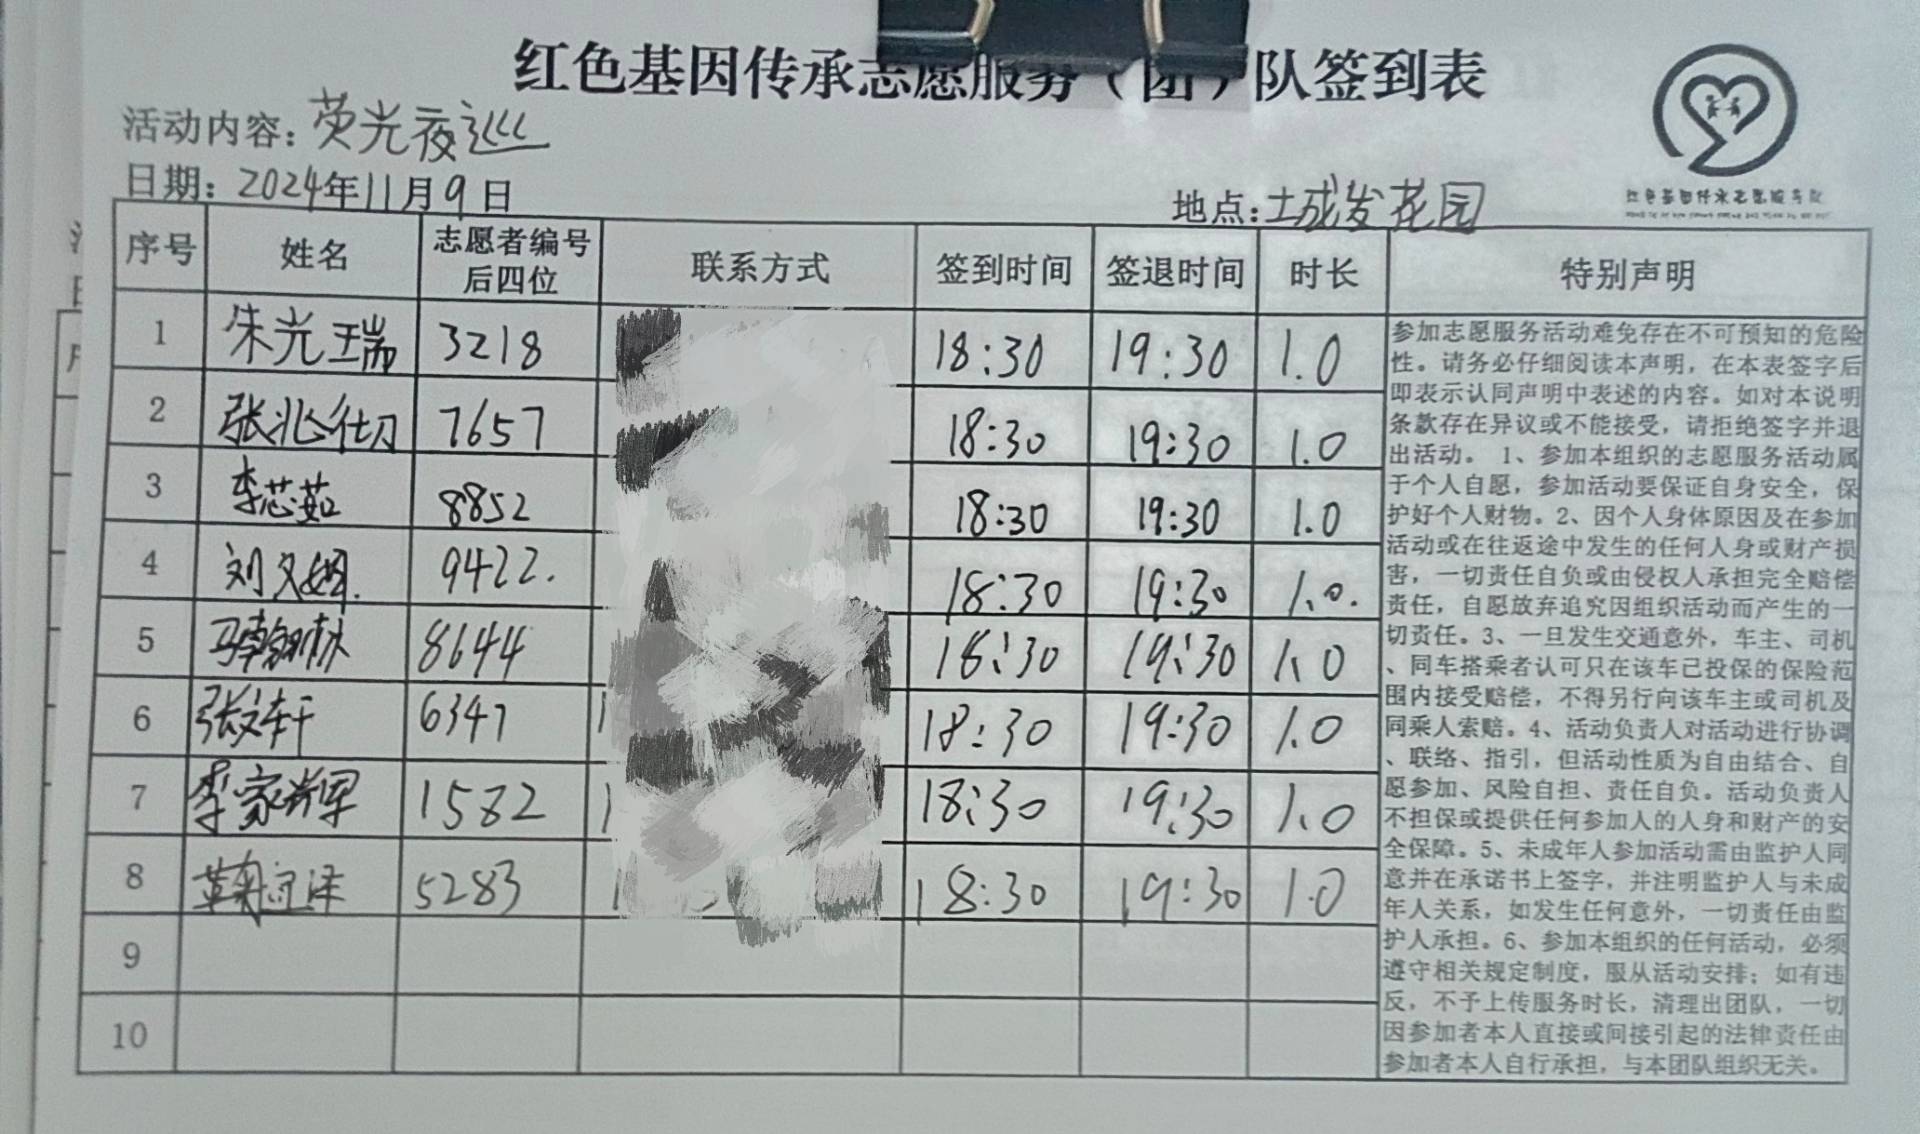 红色基因传承志愿服务（团）队签到表
活动内容：荧光夜巡
日期：2024年11月9日
地点：土成发花园
红色基因传承志愿服务队
序号 姓名 志愿者编号后四位 联系方式 签到时间 签退时间 时长 特别声明
1 朱光瑞 3218 18:30 19:30 1.0
2 张兆仕刀 7657 18:30 19:30 1.0
3 李芯茹 8852 18:30 19:30 1.0
4 刘 9422. 18:30 19:30 1.0.
5 马翰林 8644 18:30 19:30 1.0
6 张文轩 6347 18:30 19:30 1.0
7 李家辉 1582 18:30 19:30 1.0
8 5283 18:30 19:30 1.0
9
10
参加志愿服务活动难免存在不可预知的危险
性。请务必仔细阅读本声明，在本表签字后
即表示认同声明中表述的内容。如对本说明
条款存在异议或不能接受，请拒绝签字并退
出活动。 1、参加本组织的志愿服务活动属
于个人自愿，参加活动要保证自身安全，保
护好个人财物。2、因个人身体原因及在参加
活动或在往返途中发生的任何人身或财产损
害，一切责任自负或由侵权人承担完全赔偿
责任，自愿放弃追究因组织活动而产生的一
切责任。3、一旦发生交通意外，车主、司机
、同车搭乘者认可只在该车已投保的保险范
围内接受赔偿，不得另行向该车主或司机及
同乘人索赔。4、活动负责人对活动进行协调
、联络、指引，但活动性质为自由结合、自
愿参加、风险自担、责任自负。活动负责人
不担保或提供任何参加人的人身和财产的安
全保障。5、未成年人参加活动需由监护人同
意并在承诺书上签字，并注明监护人与未成
年人关系，如发生任何意外，一切责任由监
护人承担。6、参加本组织的任何活动，必须
遵守相关规定制度，服从活动安排；如有违
反，不予上传服务时长，清理出团队，一切
因参加者本人直接或间接引起的法律责任由
参加者本人自行承担，与本团队组织无关。